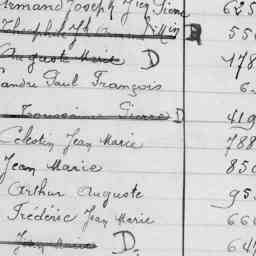 Armand Joseph Jien Pierre 625
Théophile
Auguste Marie D 178
Paul François 6
Toussaint Pierre D 419
Célestin Jean Marie 788
Jean Marie 850
Arthur Auguste 95
Frédéric Jean Marie 666
Jean Marie D. 64